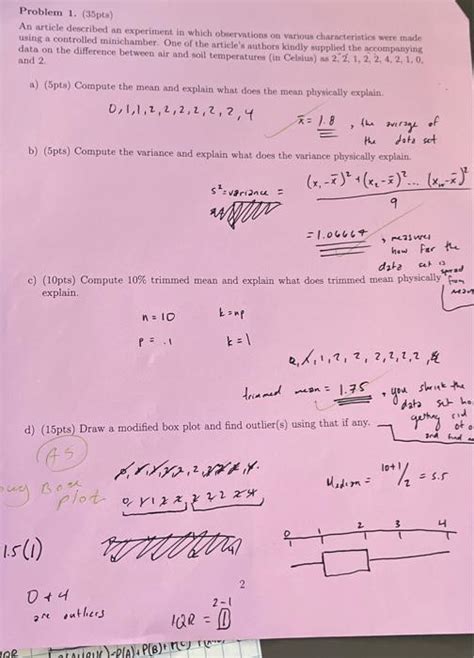 Problem 1. (35pts)
An article described an experiment in which observations on various characteristics were made
using a controlled minichamber. One of the article's authors kindly supplied the accompanying
data on the difference between air and soil temperatures (in Celsius) as 2, 2, 1, 2, 2, 4, 2, 1, 0,
and 2.
a) (5pts) Compute the mean and explain what does the mean physically explain.
0,1,1,2,2,2,2,2,2,4
x̄ = 1.8 , the average of
the data set
b) (5pts) Compute the variance and explain what does the variance physically explain.
s² = variance = (x₁-x̄)² + (x₂-x̄)² ... (xₙ-x̄)²
9
= 1.06667 , measures
how far the
data set is spread
from
mean
c) (10pts) Compute 10% trimmed mean and explain what does trimmed mean physically
explain.
n = 10 k = np
p = .1 k = 1
0,1,1,2,2,2,2,2,2,4
trimmed mean = 1.75 , you shrink the
data set
getting rid
of
and
d) (15pts) Draw a modified box plot and find outlier(s) using that if any.
Box
plot
0, 1 1 2 2, 2 2 2 2 4
Median = 10+1/2 = 5.5
0 1 2 3 4
1.5(1)
0 + 4
are outliers
2
2-1
IQR = 1